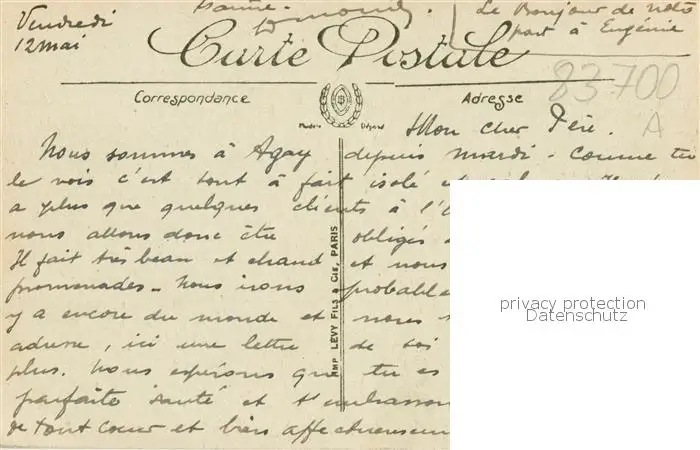 Vendredi
12 mai
Le Bonjour de notre
part à Eugénie
Carte Postale
83700
A
Correspondance
Adresse
Modèle Déposé
Mon cher Père.
Nous sommes à Agay depuis mardi - comme tu
le vois c'est tout à fait isolé et
a plus que quelques clients à l'
nous allons donc être obligés
Il fait très beau et chaud et nous
promenades - Nous irons probable
y a encore du monde et nous
adresse, ici une lettre de toi
plus. Nous espérons que tu es
parfaite santé et t'embrasson
de tout coeur et bien affectueusem
IMP. LEVY FILS & Cie, PARIS
privacy protection
Datenschutz